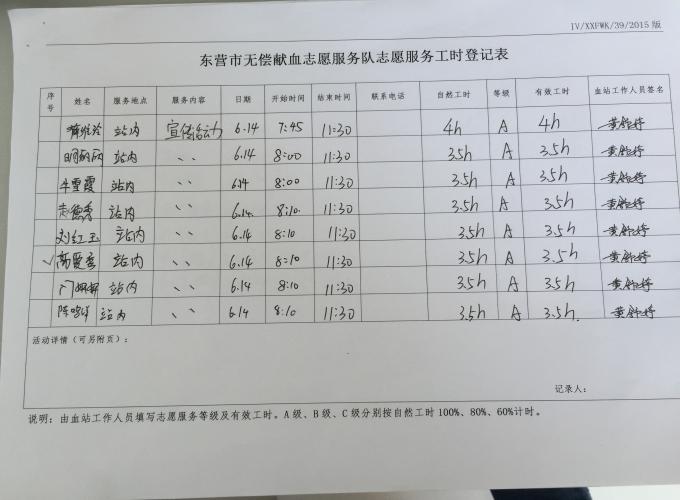 IV/XXFWK/39/2015 版
东营市无偿献血志愿服务队志愿服务工时登记表
序号 姓名 服务地点 服务内容 日期 开始时间 结束时间 联系电话 自然工时 等级 有效工时 血站工作人员签名
站内 宣传 6.14 7:45 11:30 4h A 4h
站内 、、 6.14 8:00 11:30 3.5h A 3.5h
牛雪霞 站内 、、 6.14 8:00 11:30 3.5h A 3.5h
赵德秀 站内 、、 6.14. 8:10. 11:30 3.5h A 3.5h
刘红玉 站内 、、 6.14 8:10 11:30 3.5h A 3.5h
✓ 站内 、、 6.14 8:10 11:30 3.5h A 3.5h
站内 、、 6.14 8:10 11:30 3.5h A 3.5h
站内 、、 6.14 8:10 11:30 3.5h A 3.5h.
活动详情（可另附页）：
记录人：
说明：由血站工作人员填写志愿服务等级及有效工时。A 级、B 级、C 级分别按自然工时 100%、80%、60%计时。